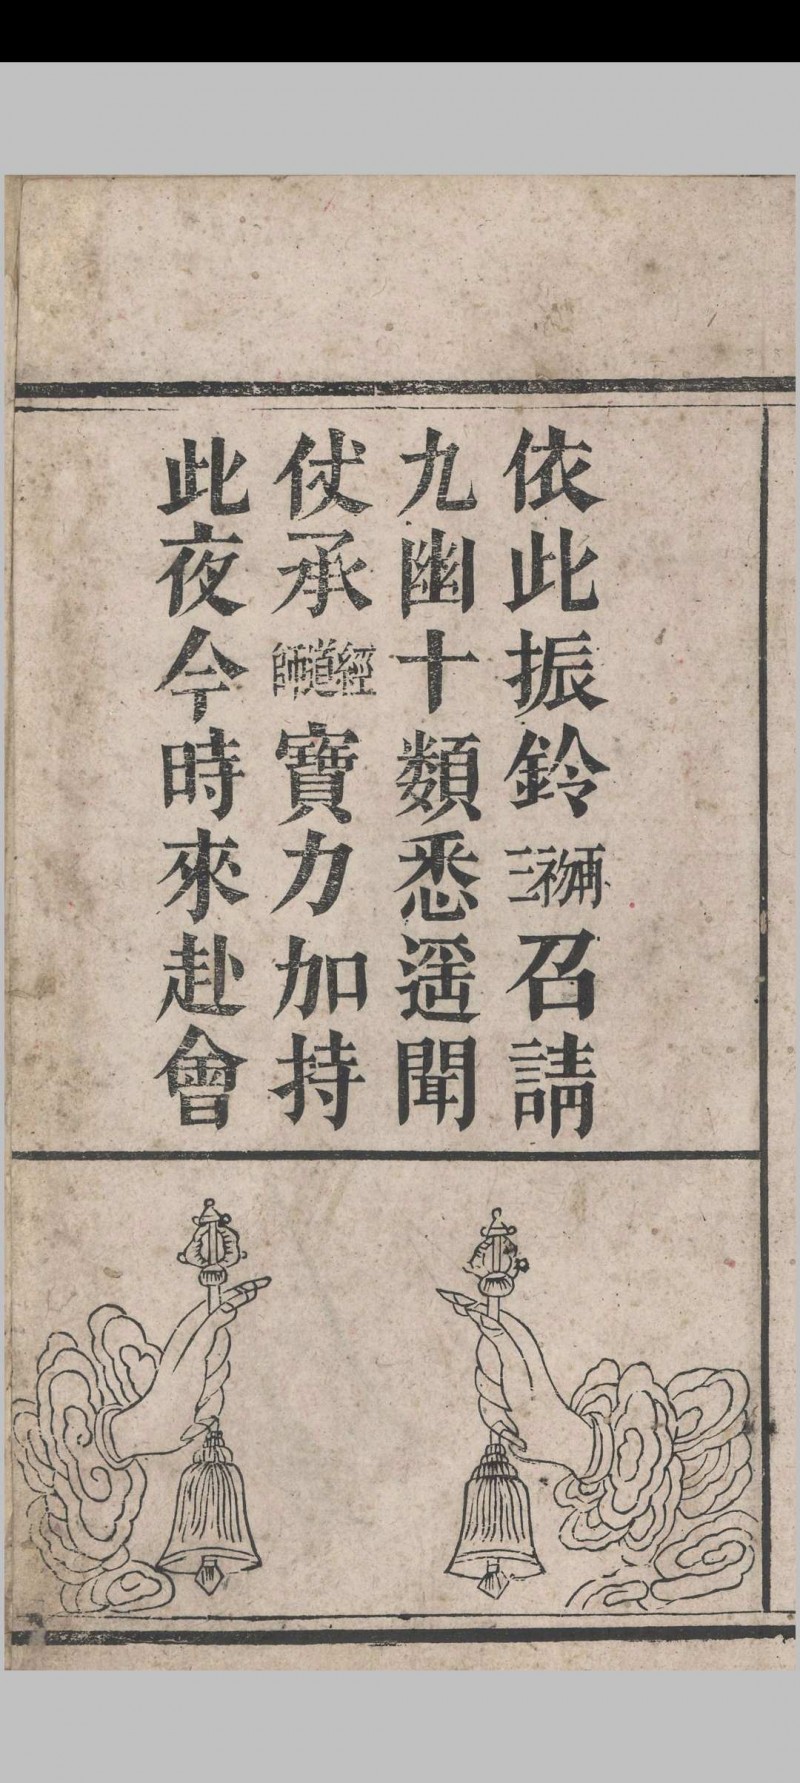 依此振鈴再初三召請
九幽十類悉遥聞
仗承經道師寶力加持
此夜今時來赴會